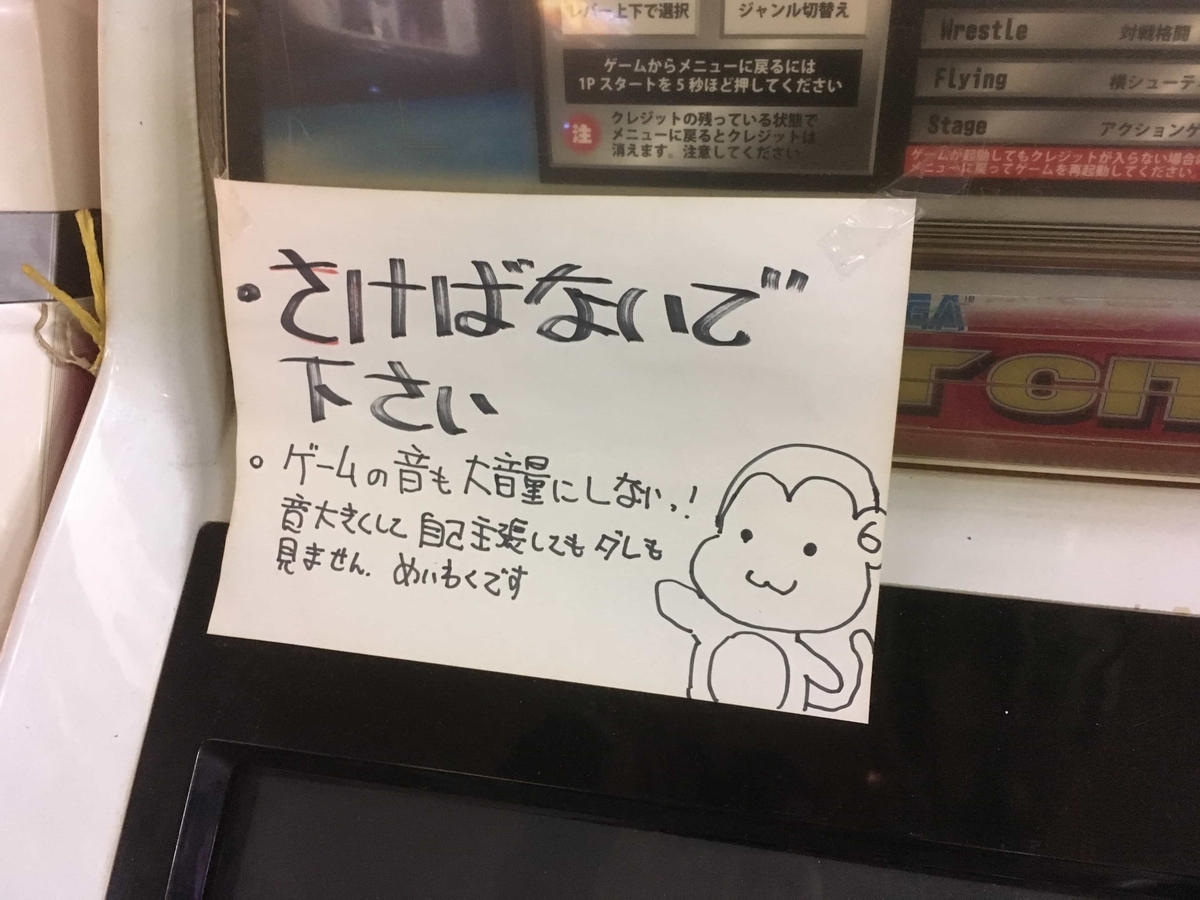 レバー上下で選択
ジャンル切替え
ゲームからメニューに戻るには
1Pスタートを5秒ほど押してください
注
クレジットの残っている状態で
メニューに戻るとクレジットは
消えます。注意してください
Wrestle 対戦格闘
Flying 横シューテ
Stage アクションゲ
ゲームが起動してもクレジットが入らない場合
メニューに戻ってゲームを再起動してください。
・さけばないで
下さい
○ ゲームの音も大音量にしないっ!
音大きくして自己主張してもダレも
見ません. めいわくです